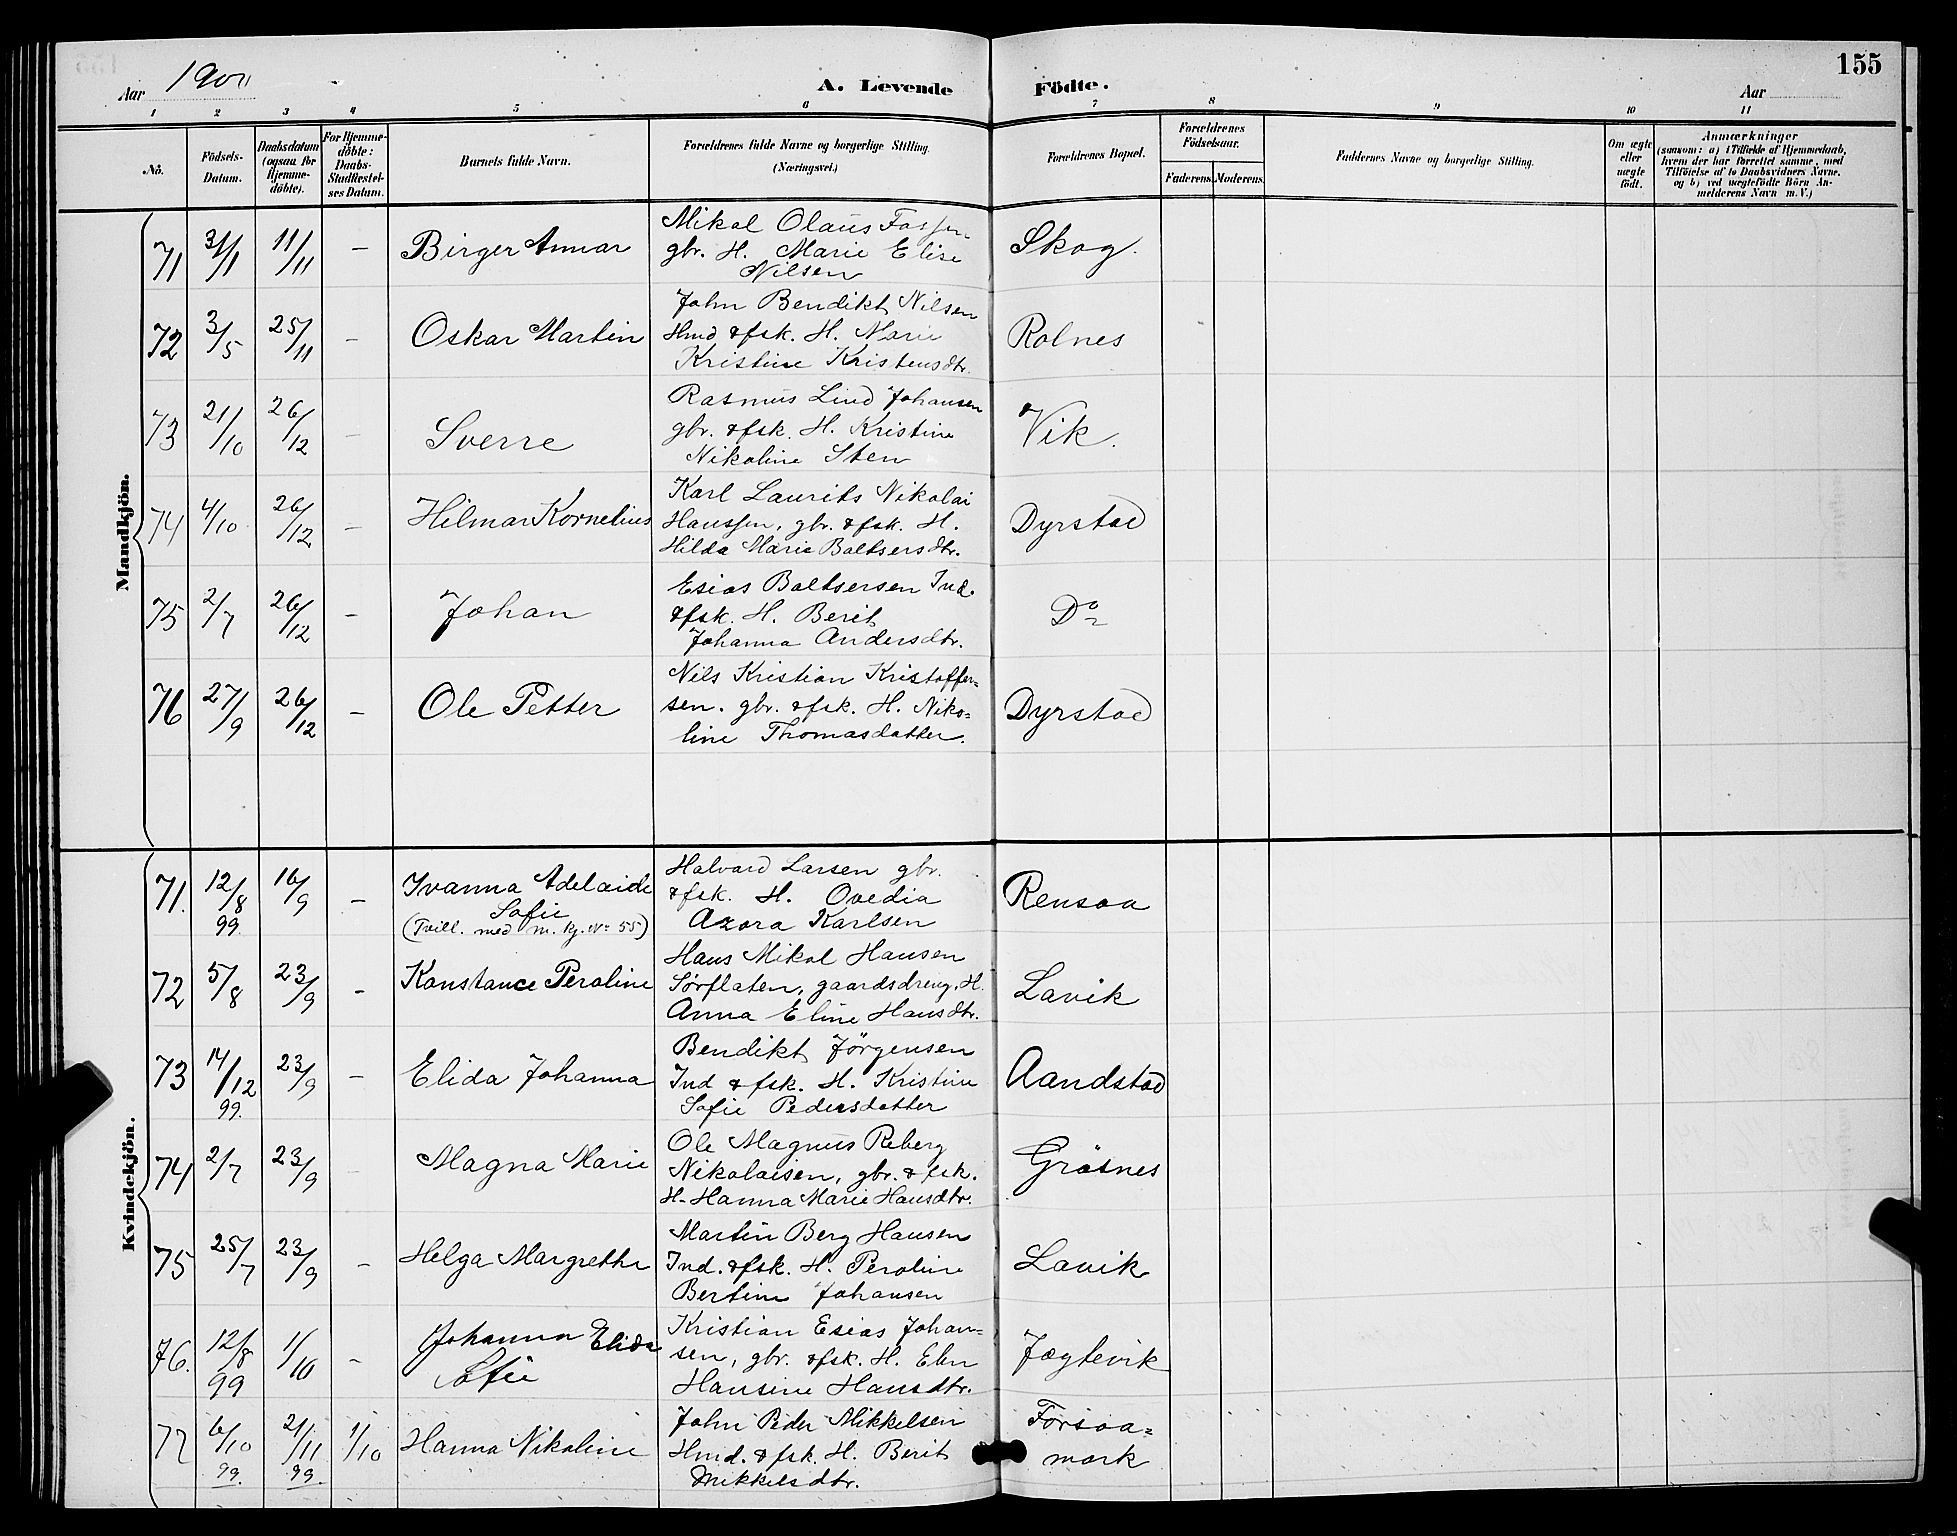 155
Aar 1900
A. Levende Födte.
Aar
1 2 3 4 5 6 7 8 9 10 11
No.
Födsels-
Datum.
Daabsdatum
(ogsaa for
Hjemme-
döbte).
For Hjemme-
döbte:
Daabs-
Stadfæstel-
ses Datum.
Barnets fulde Navn.
Forældrenes fulde Navne og borgerlige Stilling.
(Næringsvei.)
Forældrenes Bopæl.
Forældrenes
Födselsaar.
Faderens. Moderens.
Faddernes Navne og borgerlige Stilling.
Om ægte
eller
uægte
födt.
Anmærkninger
(saasom: a) i Tilfælde af Hjemmedaab,
hvem der har forrettet samme, med
Tilföielse af to Daabsvidners Navne.
og b) ved uægtefödte Börn An-
melderens Navn m. V.)
Mandkjön.
71 11/11 – Birger Annar
Mikal Olaus
gbr. H. Marie Elise
Nilsen
Skog.
72 3/5 25/11 – Oskar Martin
John Bendikt Nilsen
Hmd & fsk. H. Marie
Kristine Kristensdtr.
Rolnes
73 21/10 26/12 – Sverre
Rasmus Lind Johansen
gbr. & fsk. H. Kristine
Nikoline Sten
Vik.
74 4/10 26/12 – Hilmar Kornelius
Karl Laurits Nikolai
Hanssen, gbr. & fsk. H.
Hilda Marie Baltsersdtr.
Dyrstad
75 2/7 26/12 – Johan
Esias Baltsersen Ind.
& fsk. H. Berit
Johanna Andersdtr.
Do
76 27/9 26/12 – Ole Petter
Nils Kristian Kristoffer=
sen. gbr. & fsk. H. Niko=
line Thomasdatter.
Dyrstad
Kvindekjön.
71. 12/8 99. 16/9 – Ivanna Adelaide
Sofie
(Tvill. med m. kj. No 55)
Halvard Larsen gbr.
& fsk. H. Ovedia
Azora Karlsen
Rensaa
72 5/8 23/9 – Konstance Peroline
Hans Mikal Hansen
Sørflaten, gaardsdreng, H.
Anna Eline Hansdtr.
Lavik
73 14/12 99. 23/9 – Elida Johanna
Bendikt Jörgensen
Ind & fsk. H. Kristine
Sofie Pedersdatter
Aandstad
74 2/7 23/9 – Magna Marie
Ole Magnus Reberg
Nikolaisen, gbr. & fsk.
H. Hanna Marie Hansdtr.
Gråsnes
75 25/7 23/9 – Helga Margrethe
Martin Berg Hansen
Ind. & fsk. H. Peroline
Bertine Johansen
Lavik
76. 12/8 99 1/10 – Johanna Elida
Sofie
Kristian Esias Johan=
sen, gbr. & fsk. H. Elen
Hansine Hansdtr.
Jægtevik
77 6/10 99. 21/11 99. 1/10 Hanna Nikoline
John Peder Mikkelsen
Hmd. & fsk. H. Berit
Mikkelsdtr.
Forsaa=
mark